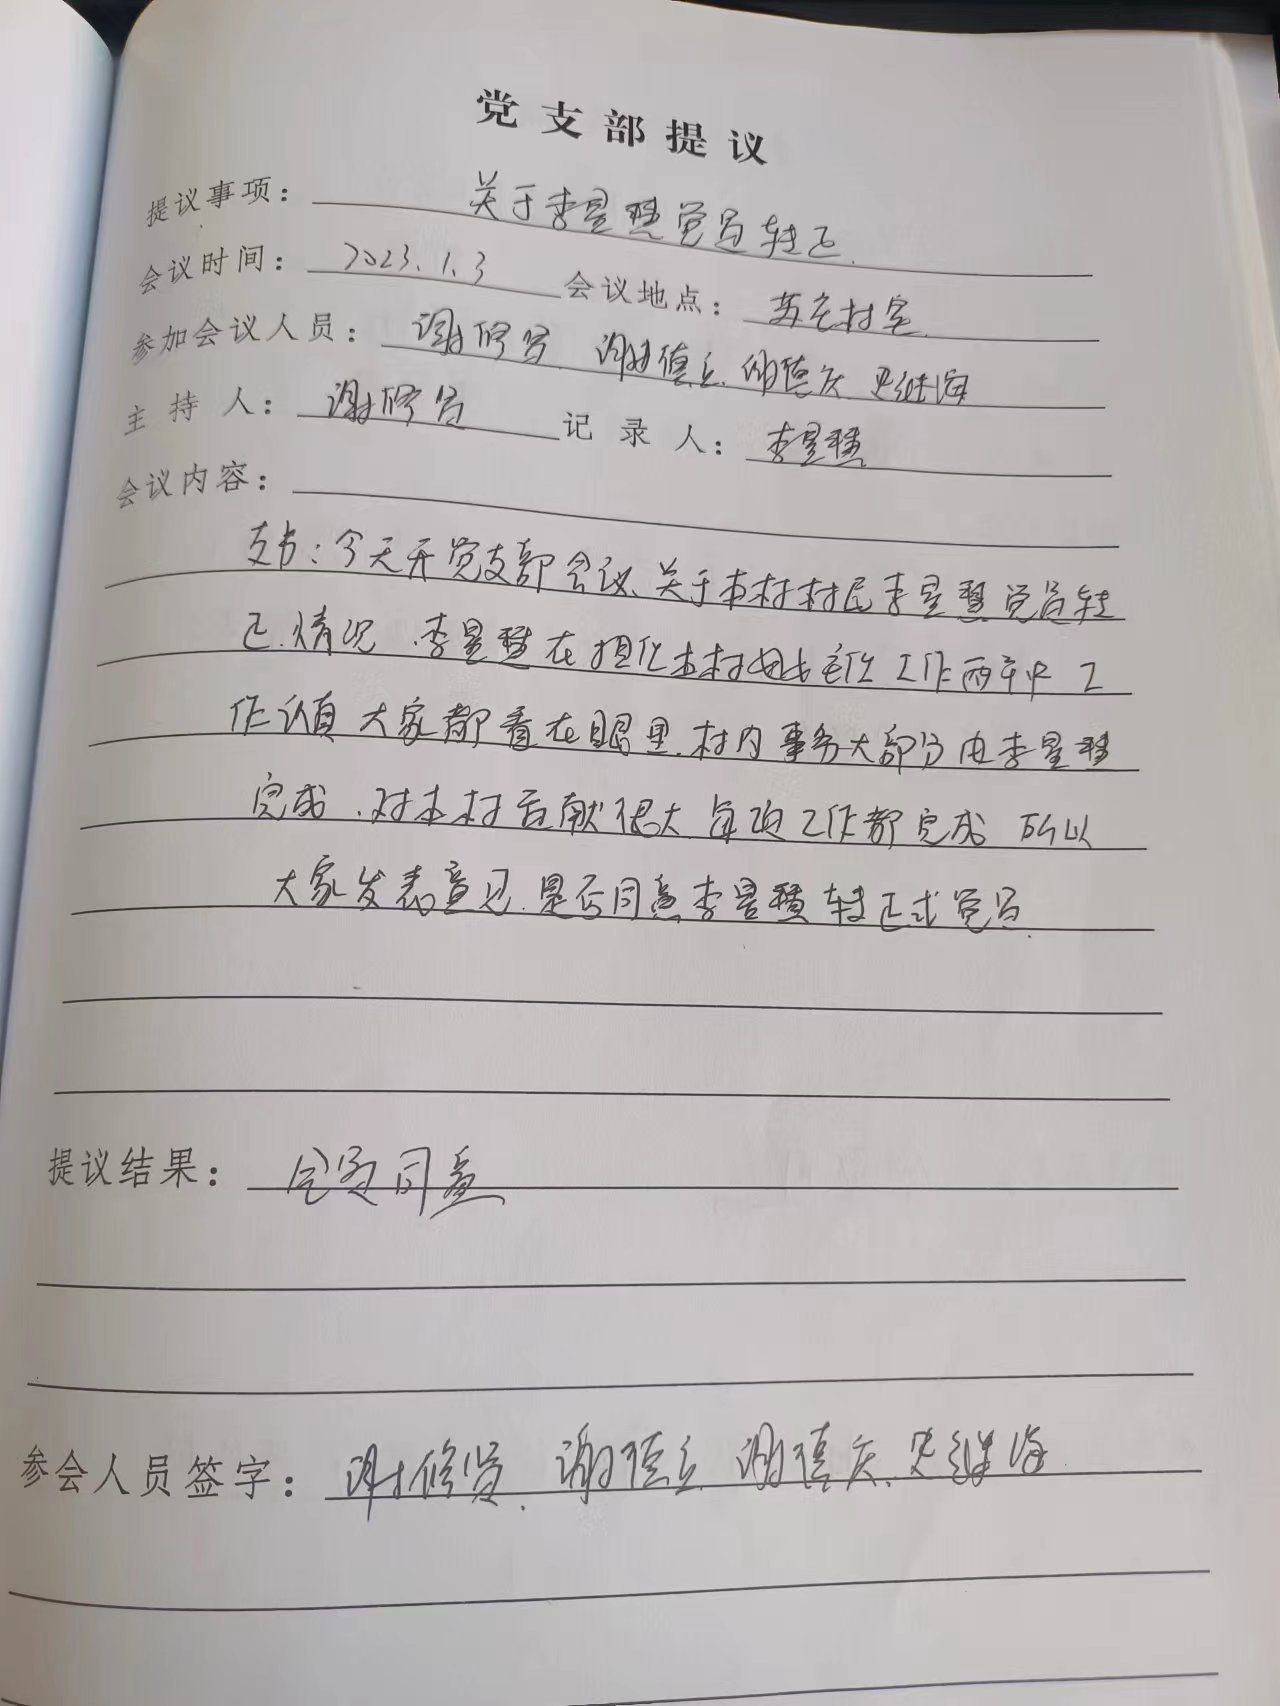 党支部提议
提议事项：关于李星慧党员转正.
会议时间：2023.1.3 会议地点：苏庄村室
参加会议人员：谢修贤、谢德立、谢德庆 史继海
主持人：谢修贤 记录人：李星慧
会议内容：
支书：今天开党支部会议、关于本村村民李星慧党员转
正.情况.李星慧在担任本村妇女主任工作两年中工
作认真 大家都看在眼里.村内事务大部分由李星慧
完成.对本村贡献很大.每项工作都完成 所以
大家发表意见.是否同意李星慧转正式党员.
提议结果：全员同意
参会人员签字：谢修贤、谢德立、谢德庆、史继海